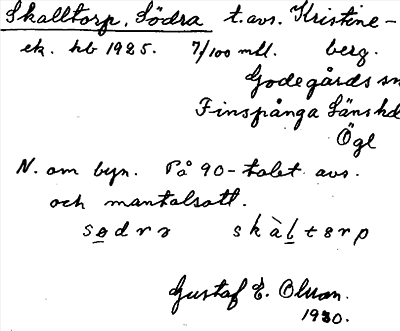 Skalltorp, Södra t. avs. Kristine-
ek. hb 1925. 7/100 mtl. berg.
Godegårds sn
Finspånga Läns hd
Ögl
N. om byn. På 90-talet avs.
och mantalsatt.
sødrə skàltørp
Gustaf E. Olsson.
1930.